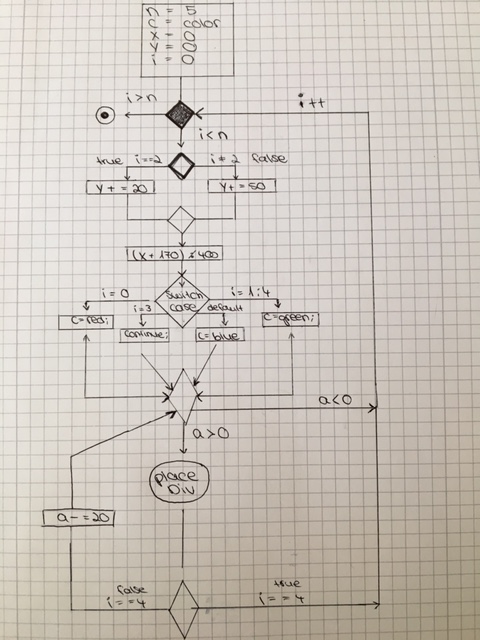 n = 5
c = color
x = 0
y = 0
i = 0
i > n
i++
i < n
true i==2
i ≠ 2 false
y += 20
y += 50
(x + 170) % 400
switch
case
i = 0
i=3
default
i = 1;4
c=red;
continue;
c=blue
c=green;
a<0
a>0
place
Div
a-=20
false
i==4
true
i==4